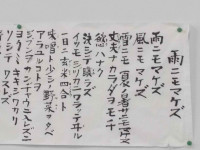 雨ニモマケズ
雨ニモマケズ
風ニモマケズ
雪ニモ夏ノ暑サニモマケヌ
丈夫ナカラダヲモチ
慾ハナク
決シテ瞋ラズ
イツモシヅカニワラッテヰル
一日ニ玄米四合ト
味噌ト少シノ野菜ヲタベ
アラユルコトヲ
ジブンヲカンジョウニ入レズニ
ヨクミキキシワカリ
ソシテワスレズ